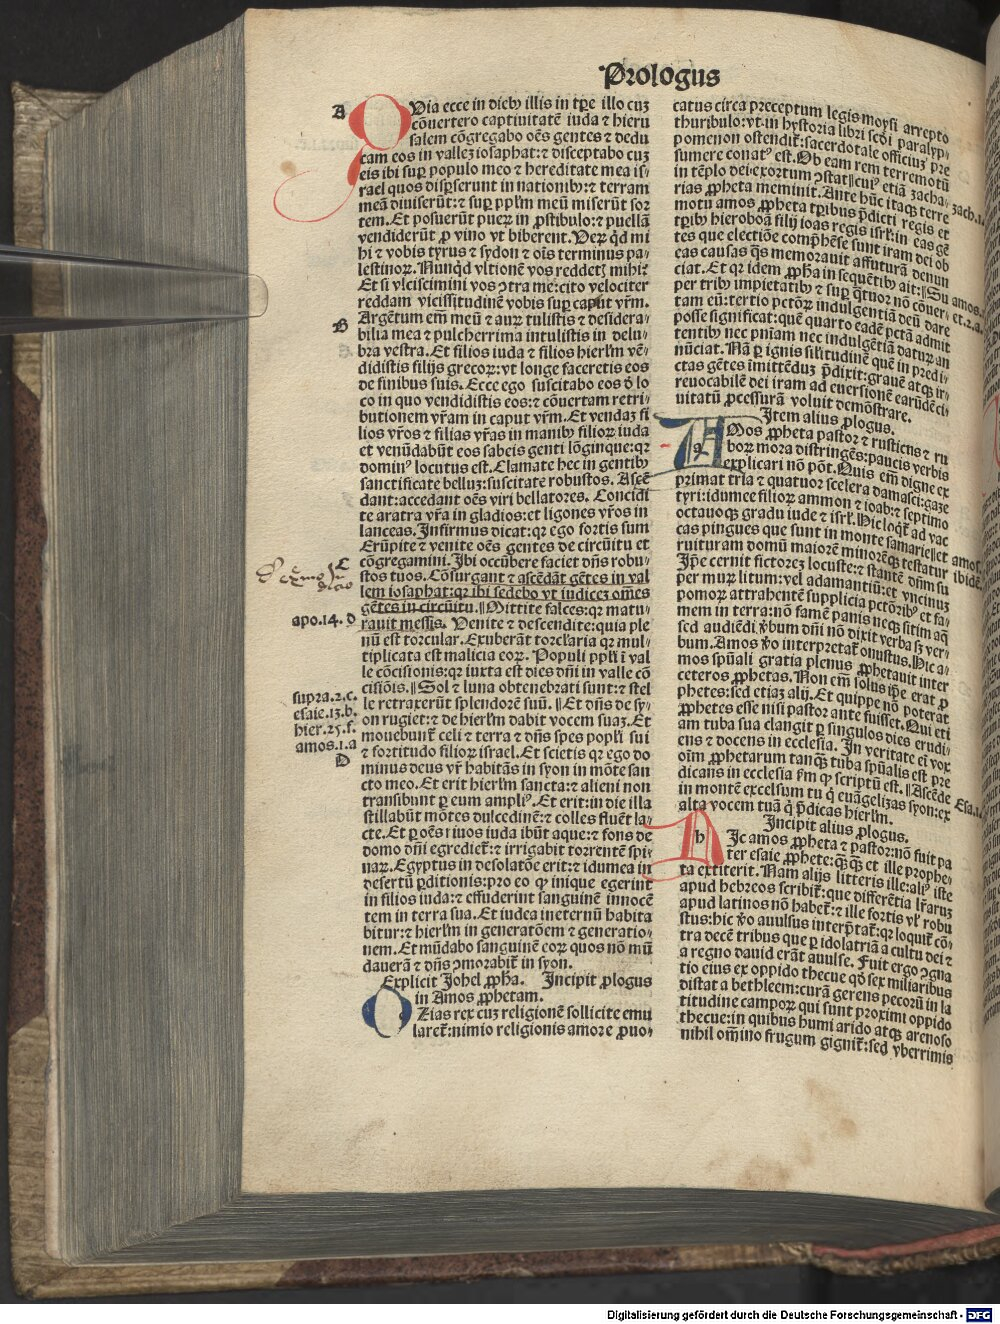 Prologus
A
QVia ecce in dieb⁹ illis in tꝑe illo cuȝ
cōuertero captiuitatē iuda ⁊ hieru
salem cōgregabo oēs gentes ⁊ dedu
cam eos in valleȝ iosaphat: ⁊ disceptabo cuȝ
eis ibi suꝑ populo meo ⁊ hereditate mea is/
rael quos disꝑserunt in nationib⁹: ⁊ terram
meā diuiserūt: ⁊ suꝑ ppl̄m meū miserūt sor
tem. Et posuerūt pueꝝ in ꝓstibulo: ⁊ puellā
vendiderūt ꝓ vino vt biberent. Veꝝ qd̄ mi
hi ⁊ vobis tyrus ⁊ sydon ⁊ oīs terminus pa/
lestinoꝝ. Nunqd̄ vltionē vos reddetȝ mihi?
Et si vlciscimini vos ꝯtra me: cito velociter
reddam vicissitudinē vobis suꝑ caput vr̄m.
B
Argētum em̄ meū ⁊ auꝝ tulistis ⁊ desidera/
bilia mea ⁊ pulcherrima intulistis in delu/
bra vestra. Et filios iuda ⁊ filios hierl̄m vē/
didistis filijs grecoꝝ: vt longe faceretis eos
de finibus suis. Ecce ego suscitabo eos d̄ lo
co in quo vendidistis eos: ⁊ cōuertam retri/
butionem vr̄am in caput vr̄m. Et vendaȝ fi
lios vr̄os ⁊ filias vr̄as in manib⁹ filioꝝ iuda
et venūdabūt eos sabeis genti lōginque: qꝛ
domin⁹ locutus est. Clamate hec in gentib⁹
sanctificate belluȝ: suscitate robustos. Ascē
dant: accedant oēs viri bellatores. Concidi
te aratra vr̄a in gladios: et ligones vr̄os in
lanceas. Infirmus dicat: qꝛ ego fortis sum
Erūpite ⁊ venite oēs gentes de circūitu et
C
cōgregamini. Ibi occūbere faciet dn̄s robu/
stos tuos. Cōsurgant ⁊ ascēdāt gētes in val
lem iosaphat: qꝛ ibi sedebo vt iudiceȝ omēs
gētes in circūitu. ‖ Mittite falces: qꝛ matu/
apo.14. d
rauit messis. Venite ⁊ descendite: quia ple
nū est torcular. Exuberāt torcl̄aria qꝛ mul/
tiplicata est malicia eoꝝ. Populi ppl̄i ī val
le cōcisionis: qꝛ iuxta est dies dn̄i in valle cō
supra.2.c.
cisiōis. ‖ Sol ⁊ luna obtenebrati sunt: ⁊ stel
esaie.13.b.
le retraxerūt splendorē suū. ‖ Et dn̄s de sy/
hier.25.f.
on rugiet: ⁊ de hierl̄m dabit vocem suaȝ. Et
amos.1.a
mouebunt̄ celi ⁊ terra ⁊ dn̄s spes popl̄i sui
D
⁊ fortitudo filioꝝ israel. Et scietis qꝛ ego do
minus deus vr̄ habitās in syon in mōte san
cto meo. Et erit hierl̄m sancta: ⁊ alieni non
transibunt ꝑ eum ampli⁹. Et erit: in die illa
stillabūt mōtes dulcedinē: ⁊ colles fluēt la/
cte. Et ꝑ oēs riuos iuda ibūt aque: ⁊ fons de
domo dn̄i egrediet̄: ⁊ irrigabit torrentē spi/
naꝝ. Egyptus in desolatōe erit: ⁊ idumea in
desertū ꝑditionis: pro eo qꝙ inique egerint
in filios iuda: ⁊ effuderint sanguinē innocē
tem in terra sua. Et iudea ineternū habita
bitur: ⁊ hierl̄m in generatōem ⁊ generatio/
nem. Et mūdabo sanguinē eoꝝ quos nō mū
dauerā ⁊ dn̄s ꝯmorabit̄ in syon.
Explicit Johel ꝓpha. Incipit ꝓlogus
in Amos ꝓphetam.
OZias rex cuȝ religionē sollicite emu
laret̄: nimio religionis amore ꝓuo/
catus circa preceptum legis moysi arrepto
thuribulo: vt in hystoria libri scd̄i paralyp/
pomenon ostendit̄: sacerdotale officiuȝ pre
sumere conat⁹ est. Ob eam rem terremotū
in tēplo dei exortum ꝯstat ‖ cui⁹ etiā zacha/
zach.1.
rias ꝓpheta meminit. Ante hūc itaqꝫ terre
motu amos ꝓpheta tribus p̄dicti regis et
trib⁹ hieroboā filij ioas regis isrl̄: in eas gē
tes que electiōe comp̄hēse sunt iram dei ob
eas causas q̄s memorauit affuturā denun
ciat. Et qꝛ idem ꝓpha in sequētib⁹ ait: ‖ Su
amos.
per trib⁹ impietatib⁹ ⁊ suꝑ q̄tuor nō cōuer/
et.2.a.
tam eū: tertio pctōꝝ indulgentiā deū dare
posse significat: quē quarto eadē pctā admit
tentib⁹ nec pn̄iam nec indulgētiā datuꝝ an
nūciat. Nā ꝑ ignis sil̄itudinē quē in predi/
ctas gētes īmittēduȝ p̄dixit: grauē atqꝫ ir/
reuocabilē dei iram ad euersionē earūdē ci/
uitatū ꝓcessurā voluit demōstrare.
Item alius ꝓlogus.
AMos ꝓpheta pastor ⁊ rusticus ⁊ ru
boꝝ mora distringēs: paucis verbis
explicari nō pōt. Quis em̄ digne ex
primat tria ⁊ quatuor scelera damasci: gaze
tyri: idumee filioꝝ ammon ⁊ ioab: ⁊ septimo
octauoqꝫ gradu iude ⁊ isrl̄. Hic loqt̄ ad vac
cas pingues que sunt in monte samarie ‖ et
amos.
ruituram domū maiorē minorēqꝫ testatur
ibidē.
Ip̄e cernit fictoreȝ locuste: ⁊ stantē dn̄m su
per muꝝ litum: vel adamantiū: et vncinuȝ
pomoꝝ attrahentē supplicia pctōrib⁹ et fa/
mem in terra: nō famē panis neqꝫ sitim aq̄
sed audiēdi v̄bum dn̄i nō dixit verba sȝ ver/
bum. Amos v̄o interpretat̄ onustus. Hic a/
mos spūali gratia plenus ꝓphetauit inter
ceteros ꝓphetas. Non em̄ solus ip̄e erat ꝓ
phetes: sed etiaȝ alij. Et quippe nō poterat
ꝓphetes esse nisi pastor ante fuisset. Qui eti
am tuba sua clangit ꝑ singulos dies erudi/
ens ⁊ docens in ecclesia. In veritate ei vox
oīm ꝓphetarum tanqꝫ tuba spūalis est pre
dicans in ecclesia ẜm qꝙ scriptū est. ‖ Ascēde
in montē excelsum tu q̄ euāgeliȝas syon: ex
Esa.1.
alta vocem tuā q̄ p̄dicas hierl̄m.
Incipit alius ꝓlogus.
HIc amos ꝓpheta ⁊ pastor: nō fuit pa
ter esaie ꝓphete: q̄ꝫq̄ꝫ et ille prophe/
ta extiterit. Nam alijs litteris ille: ali⁹ iste
apud hebreos scribit̄: que differētia lr̄aruȝ
apud latinos nō habet̄: ⁊ ille fortis vl̄ robu
stus: hic v̄o auulsus interp̄tat̄: qꝛ loquit̄ cō/
tra decē tribus que ꝑ idolatriā a cultu dei ⁊
a regno dauid erāt auulse. Fuit ergo ꝯgna
tio eius ex oppido thecue qd̄ sex miliaribus
distat a bethleem: curā gerens pecorū in la
titudine campoꝝ qui sunt proximi oppido
thecue: in quibus humi arido atqꝫ arenoso
nihil om̄ino frugum gignit̄: sed vberrimis
Digitalisierung gefördert durch die Deutsche Forschungsgemeinschaft - DFG